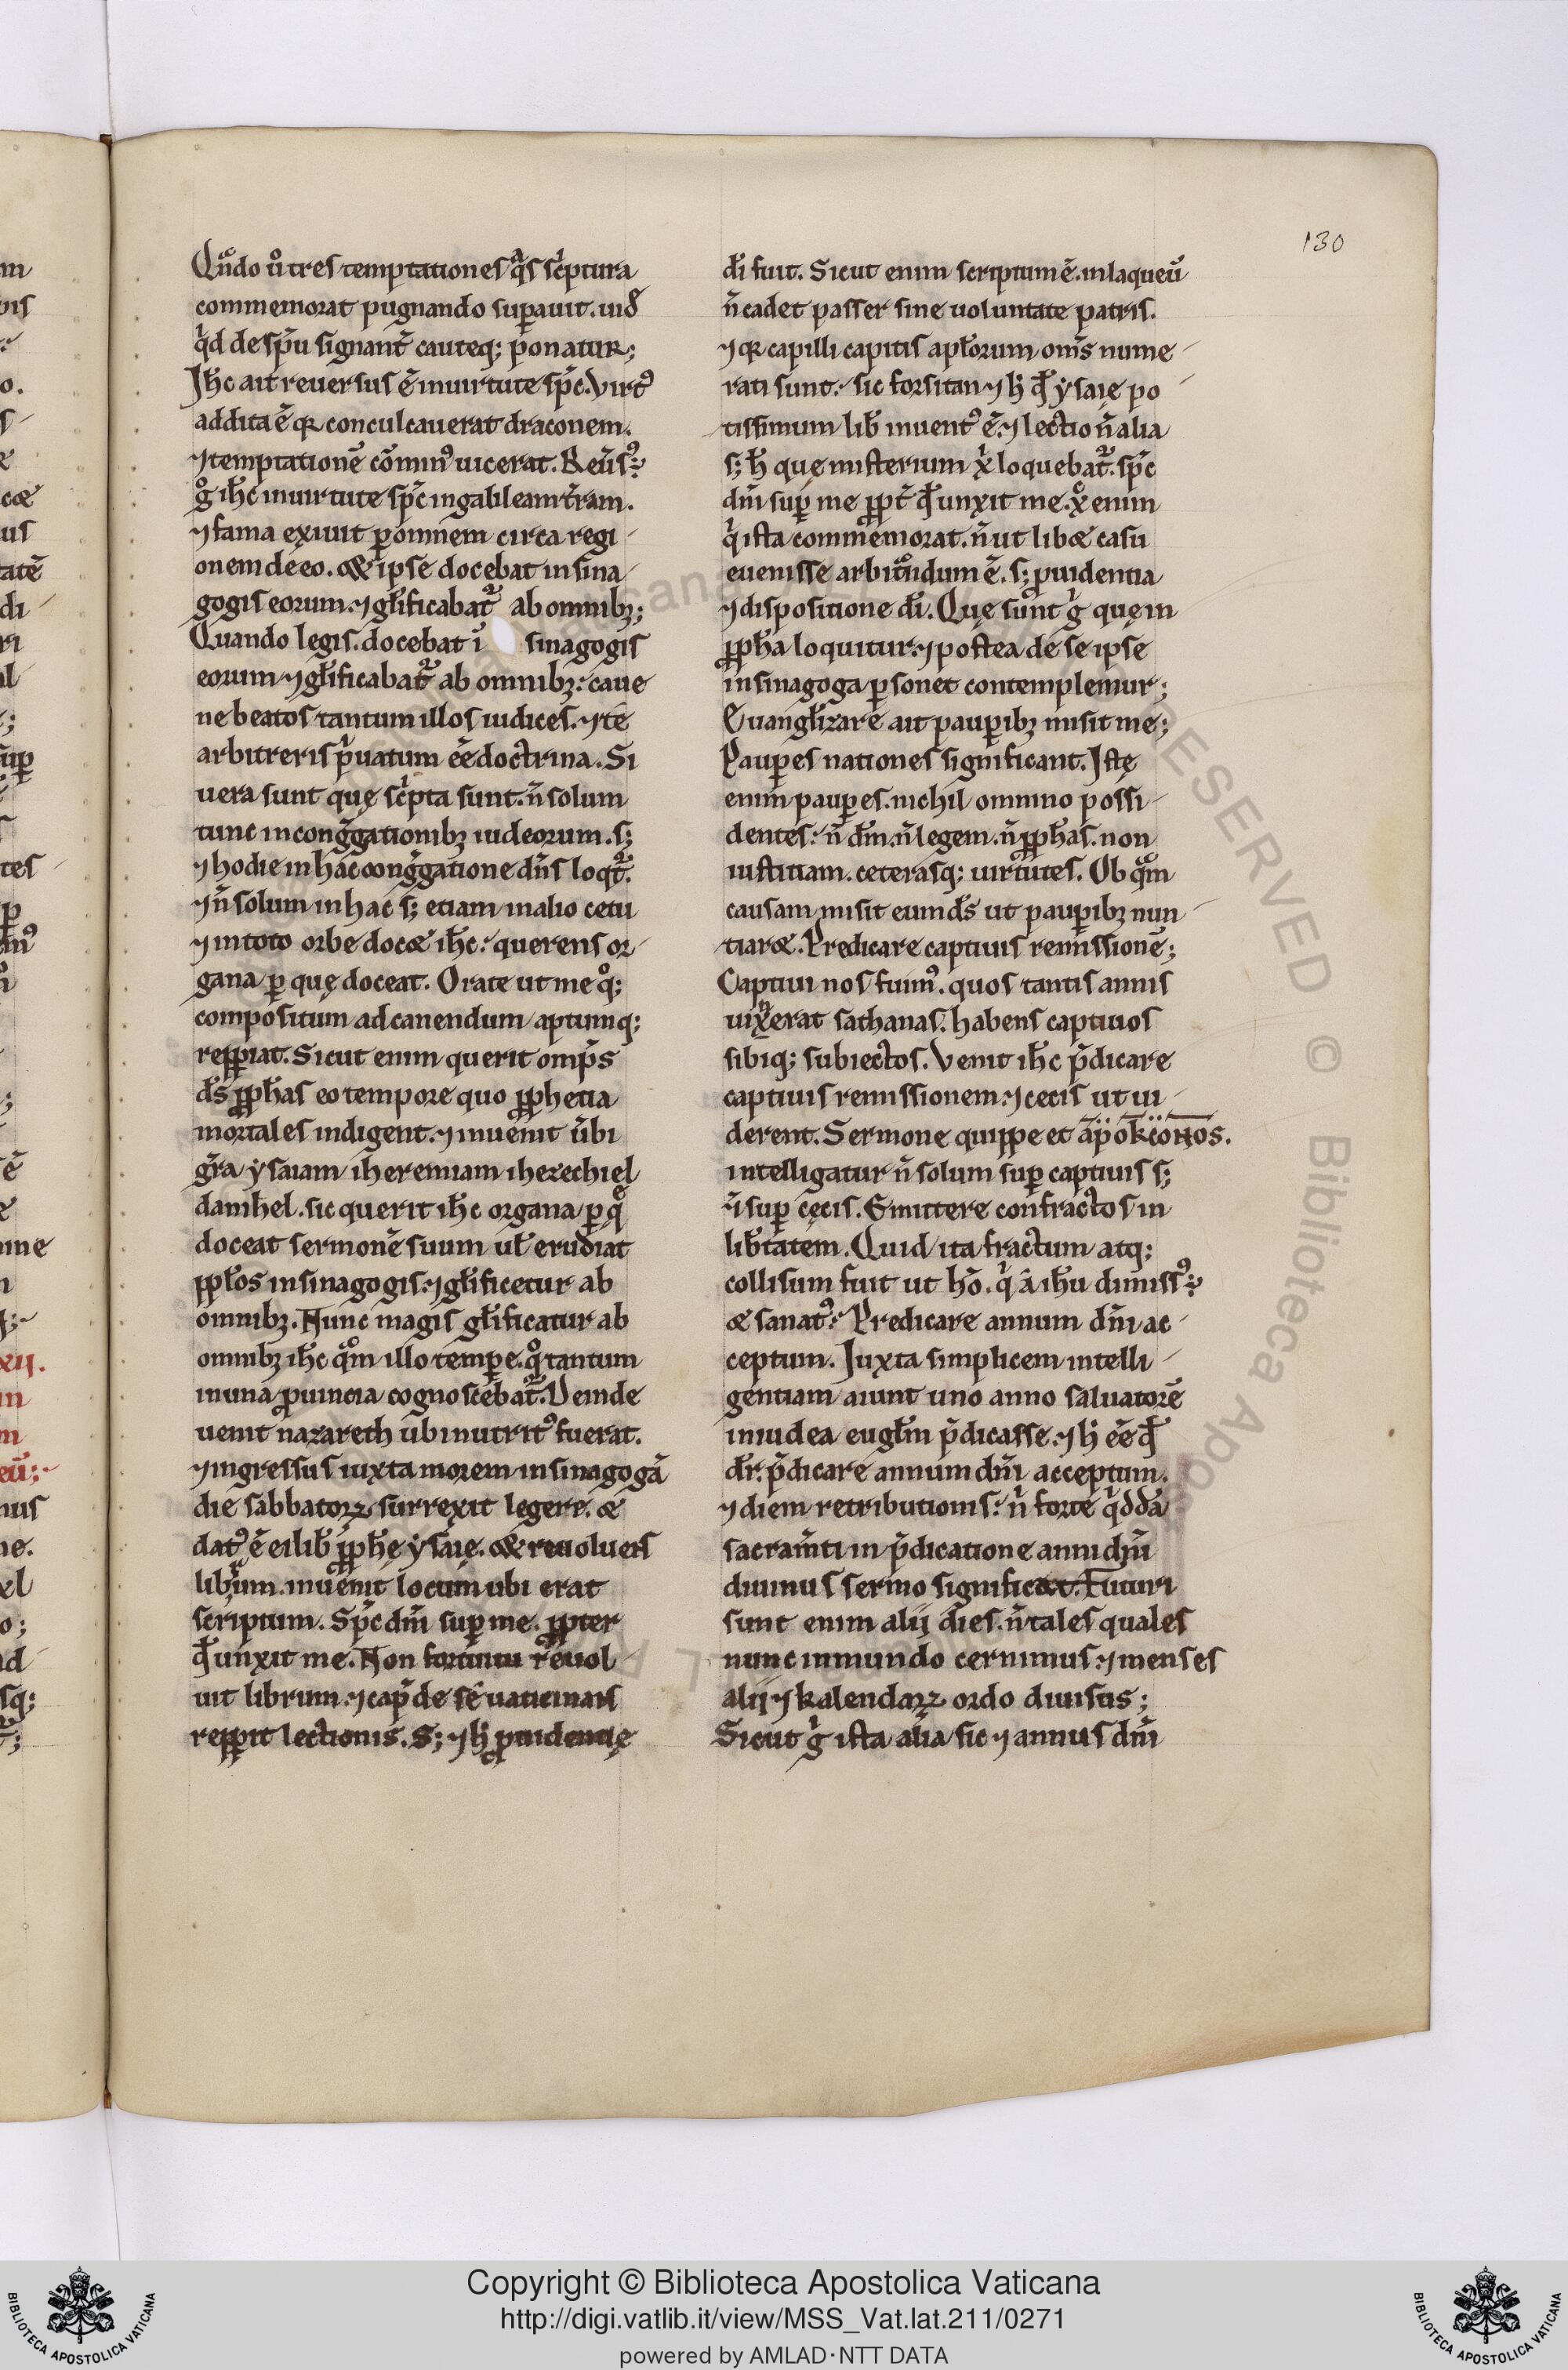 130
Qn̄do ů tres temptationes q̃s sc̓ptura
commemorat pugnando sup̱auit. uid̵
q̓d de sp̄u signant᷑ cauteq; ponatur;
Ih̄c ait reuersus ē in uirtute sp̄c. Virt᷒
addita ē qꝛ conculcauerat draconem.
⁊ temptationē cōmin᷒ uicerat. Reūs᷒
g̊ ih̄c in uirtute sp̄c in galileam t̄ram.
⁊ fama exiuit p̱ omnem circa regi-
onem de eo. & ipse docebat in sina-
gogis eorum. ⁊ gl̄ificabat᷑ ab omnibꝫ;
Quando legis. docebat ī sinagogis
eorum ⁊ gl̄ificabat᷑ ab omnibꝫ: caue
ne beatos tantum illos iudices. ⁊ te
arbitreris p̓uatum ēe doctrina. Si
uera sunt quę sc̓pta sunt. n̄ solum
tunc in cong̃gationibꝫ iudeorum. s;
⁊ hodie in hac cong̃gatione dn̄s loqt᷑.
⁊ n̄ solum in hac s; etiam in alio cetu
⁊ in toto orbe docæ ih̄c: querens or-
gana p̱ quę doceat. Orate ut me q̊;
compositum ad canendum aptumq;
repp̱iat. Sicut enim querit omp̄s
d̄s ꝓph̄as eo tempore quo ꝓphetia
mortales indigent. ⁊ inuenit ūbi
gr̄a ẏsaiam iheremiam ihezechiel
danihel. sic querit ih̄c organa p̱ q̄
doceat sermonē suum ul̄ erudiat
ppl̄os in sinagogis. ⁊ gl̄ificetur ab
omnibꝫ. Nunc magis gl̄ificatur ab
omnibꝫ ih̄c q̊m illo temp̱e. q̊ tantum
in una ꝓuincia cognoscebat᷑. Deinde
uenit nazareth ubi nutrit᷒ fuerat.
⁊ ingressus iuxta morem in sinagogā
die sabbatoꝝ surrexit legere. æ
dat᷒ ē ei lib̄ ꝓph̄ę ẏsaię. & reuoluens
libr̄um. inuenit locum ubi erat
scriptum. Sp̄c dn̄i sup̱ me. ꝓpter
qđ unxit me. Non fortuitu reuol-
uit librum. ⁊ cap̱ de se uaticinans
repp̱it lectionis. S; ⁊ h̓ ꝓuidentię
dī fuit. Sicut enim scriptum ē. in laqueū
n̄ cadet passer sine uoluntate patris.
⁊ qꝛ capilli capitis apl̄orum om̄s nume-
rati sunt: sic forsitan ⁊ h̓ qđ ẏsaię po-
tissimum lib̄ inuent᷒ ē. ⁊ lectio n̄ alia
s; h̄ quę misterium x̓ loquebat᷑. sp̄c
dn̄i sup̱ me ꝓpt᷑ qđ unxit me. x̊ enim
q̓ ista commemorat. n̄ ut libæ casu
euenisse arbit̃ndum ē. s; ꝓuidentia
⁊ dispositione dī. Quę sunt g̓ quę in
ꝓph̄a loquitur. ⁊ postea de se ipse
in sinagoga p̱sonet contemplemur;
Euangl̄izare ait paup̱ibꝫ misit me;
Paup̱es nationes significant. Istę
enim paup̱es. nichil omnino possi-
dentes: n̄ dm̄. n̄ legem. n̄ ꝓph̄as. non
iustitiam. ceterasq; uirtutes. Ob q̃m
causam misit eum d̄s ut paup̱ibꝫ nun-
tiaræ. Predicare captiuis remissionē;
Captiui nos fuim᷒. quos tantis annis
uixerat sathanas. habens captiuos
sibiq; subiectos. Venit ih̄c p̄dicare
captiuis remissionem. ⁊ cecis ut ui-
derent. Sermone quippe et ap̄okconos.
intelligatur n̄ solum sup̱ captiuis s;
⁊ sup̱ cęcis. Emittere confractos in
lib̄tatem. Quid ita fractum atq;
collisum fuit ut hō. q̓ a ih̄u dimiss᷒
æ sanat᷒. Predicare annum dn̄i ac-
ceptum. Iuxta simplicem intelli-
gentiam aiunt uno anno saluatorē
in iudea eugl̄m p̄dicasse. ⁊ h̓ ēe qđ
dr̄. p̄dicare annum dn̄i acceptum.
⁊ diem retributionis: n̄ forte q̓dda
sacram̄ti in p̄dicatione anni dn̄i
diuinus sermo significat. Futuri
sunt enim alij dies. n̄ tales quales
nunc in mundo cernimus. ⁊ menses
alij ⁊ kalendaꝝ ordo diuisus;
Sicut g̓ ista alia sic ⁊ annus dn̄i
Copyright © Biblioteca Apostolica Vaticana
http://digi.vatlib.it/view/MSS_Vat.lat.211/0271
powered by AMLAD·NTT DATA